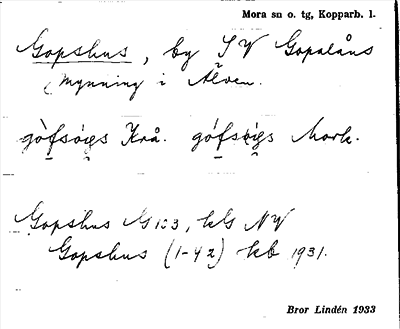 Mora sn o. tg, Kopparb. l.
Gopshus, by SV Gopalåns
mynning i Älven.
gòfsógs Krå. gófsógs Mork.
Gopshus G133, kG NV
Gopshus (1-42) kb 1931.
Bror Lindén 1933